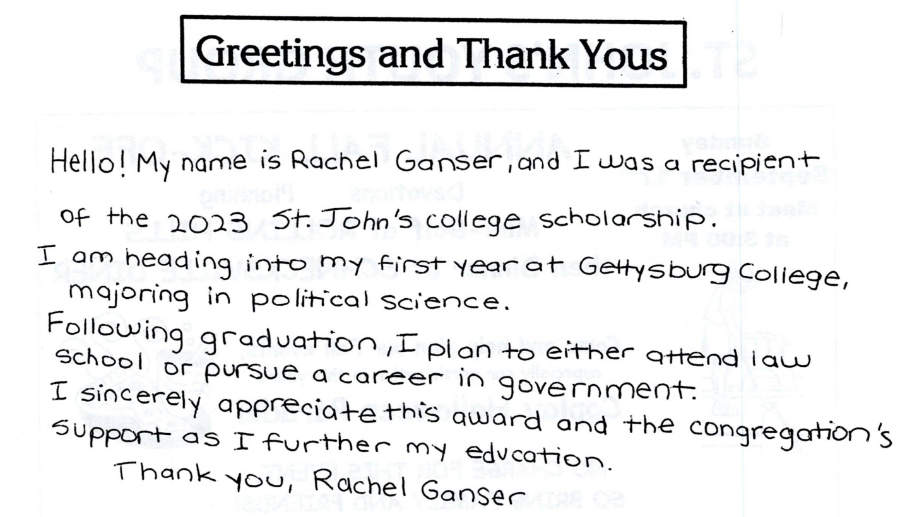 Greetings and Thank Yous
Hello! My name is Rachel Ganser, and I was a recipient
of the 2023 St. John's college scholarship.
I am heading into my first year at Gettysburg College,
majoring in political science.
Following graduation, I plan to either attend law
school or pursue a career in government.
I sincerely appreciate this award and the congregation's
support as I further my education.
Thank you, Rachel Ganser